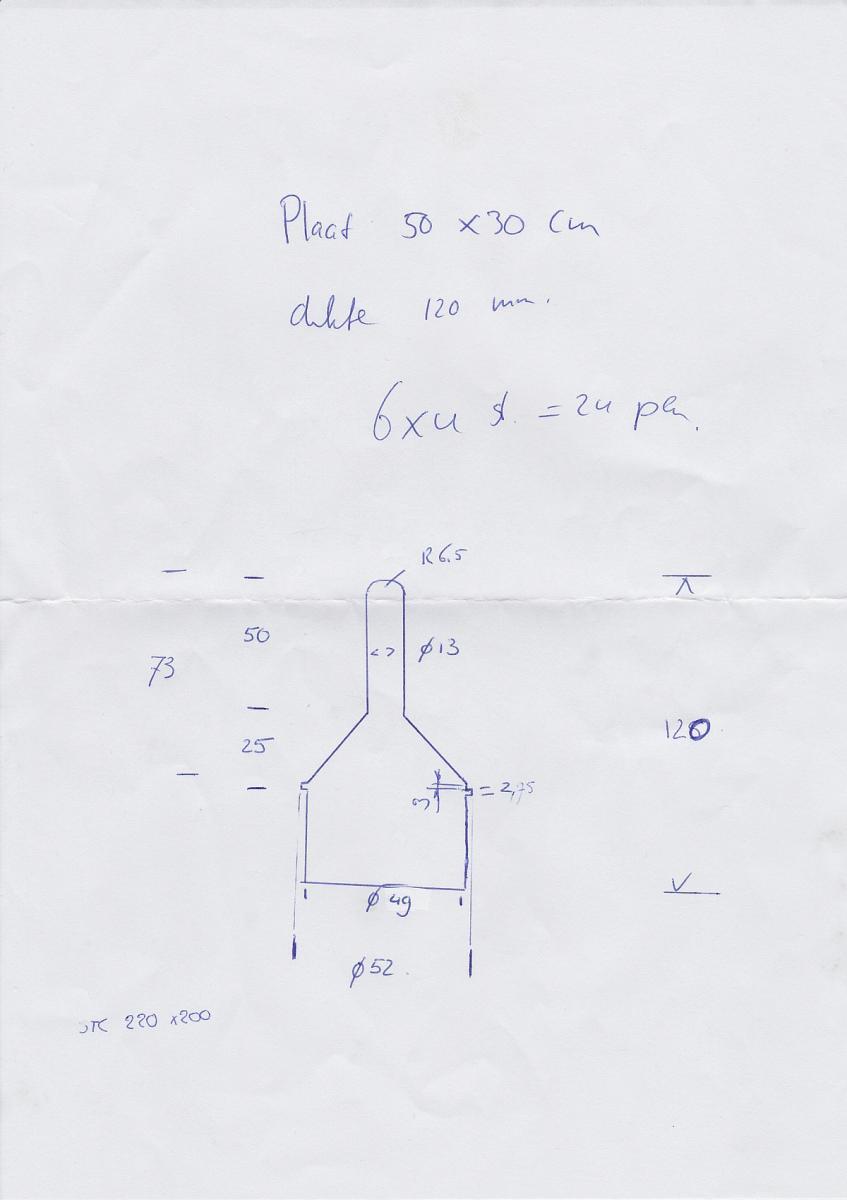 Plaat 50 x 30 cm
dikte 120 mm.
6 x 4 st. = 24 per.
R 6.5
50
ø 13
73
120
25
3
= 2,75
ø 49
ø 52.
220 x 200